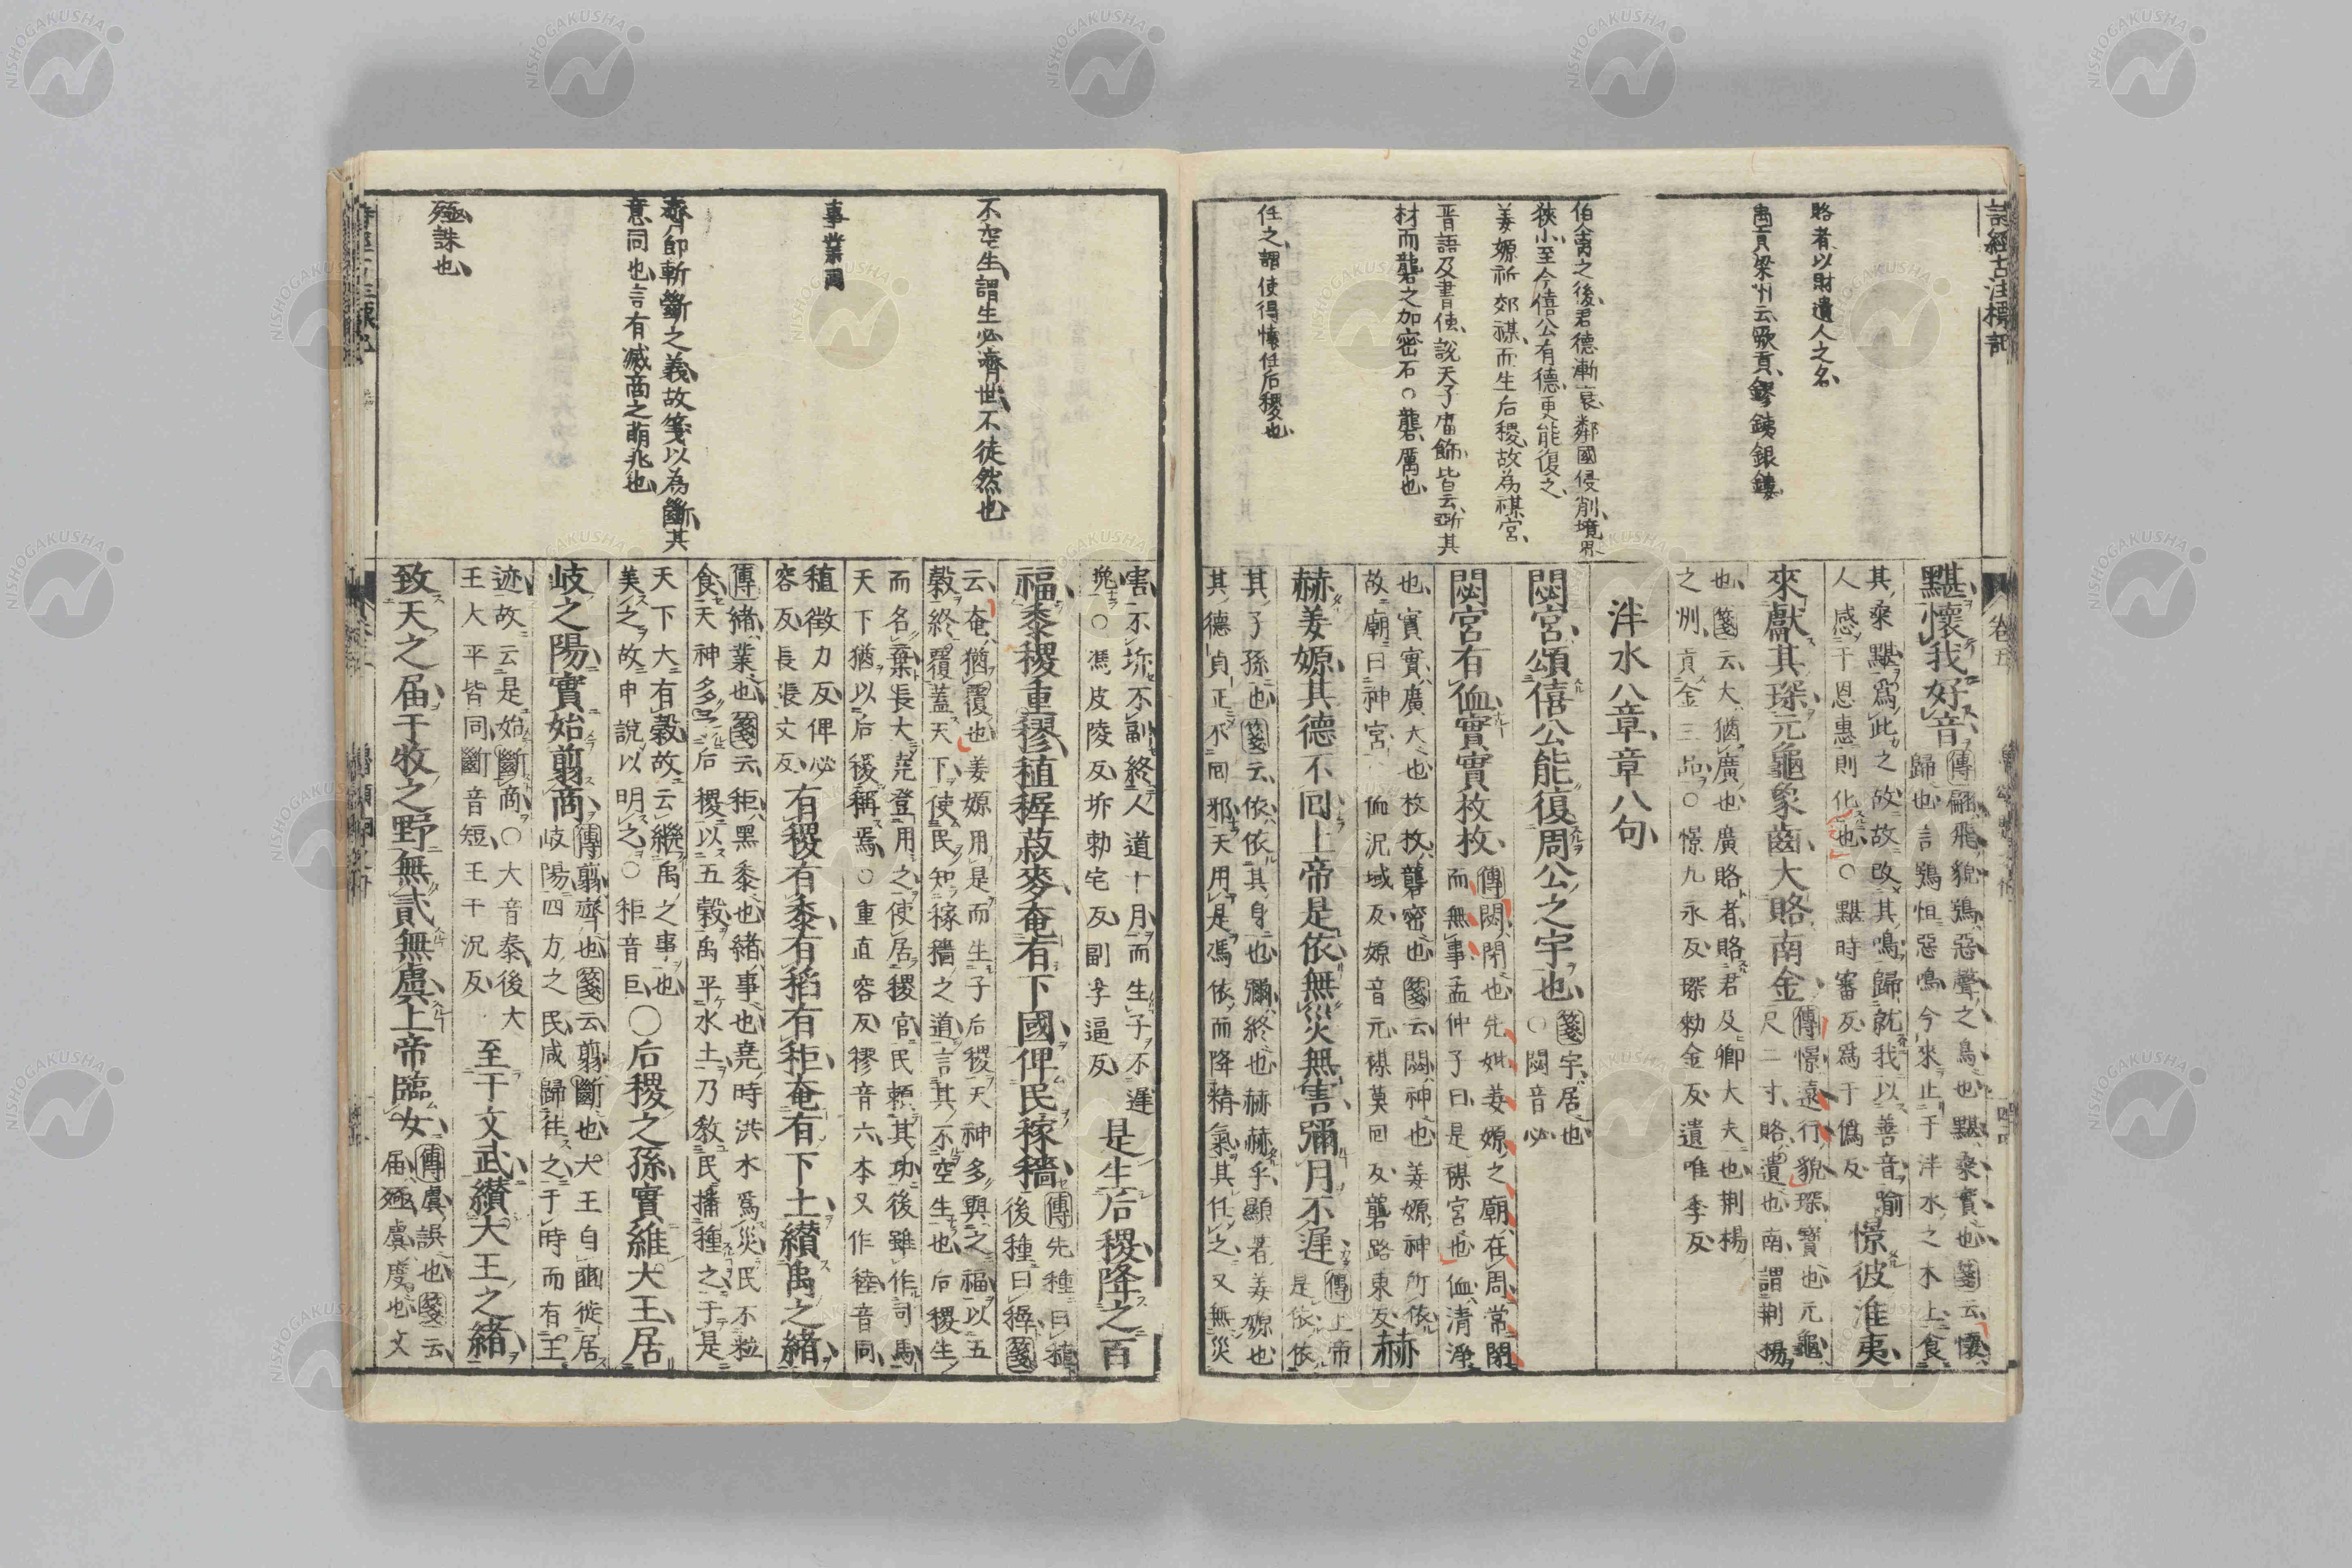 詩經古注標記
賂者以財遺人之名
禹貢梁州云厥貢鏐鐵銀鏤
伯禽之後君德漸衰鄰國侵削境界
狹小至今僖公有德更能復之
姜嫄祈郊禖而生后稷故為禖宮
晋語及書傳說天子廟飾皆云斲其
材而礱之加密石○礱厲也
任之謂使得懷任后稷也
卷五
黮懷我好音傳翩飛貌鴞惡聲之鳥也黮桑實也箋云懷
歸也言鴞恒惡鳴今來止于泮水之木上食
其桑黮爲此之故故改其鳴歸就我以善音喻
人感于恩惠則化也○黮時審反爲于僞反憬彼淮夷
來獻其琛元龜象齒大賂南金傳憬遠行貌琛寶也元龜
尺二寸賂遺也南謂荆揚
也箋云大猶廣也廣賂者賂君及卿大夫也荆楊
之州貢金三品○憬九永反琛勑金反遺唯季反
泮水八章章八句
閟宮頌僖公能復周公之宇也箋宇居也
○閟音必
閟宮有侐實實枚枚傳閟閉也先妣姜嫄之廟在周常閉
而無事孟仲子曰是禖宮也侐清淨
也實實廣大也枚枚礱密也箋云閟神也姜嫄神所依
故廟曰神宮○侐況域反嫄音元禖莫回反礱路東反赫
赫姜嫄其德不回上帝是依無災無害彌月不遲傳上帝
是依依
其子孫也箋云依依其身也彌終也赫赫乎顯著姜嫄也
其德貞正不回邪天用是馮依而降精氣其任之又無災
不空生謂生必濟世不徒然也
事業
齊即斬斷之義故箋以為斷其
意同也言有滅商之萌兆也
殛誅也
害不坼不副終人道十月而生子不遲
挽○馮皮陵反坼勅宅反副孚逼反是生后稷降之百
福黍稷重穋稙穉菽麥奄有下國俾民稼穡傳先種曰稙
後種曰穉箋
云奄猶覆也姜嫄用是而生子后稷天神多與之福以五
穀終覆蓋天下使民知稼穡之道言其不空生也后稷生
而名棄長大堯登用之使居稷官民賴其功後雖作司馬
天下猶以后稷稱焉○重直容反穋音六本又作稑音同
稙徵力反俾必
容反長張丈反有稷有黍有稻有秬奄有下土纘禹之緒
傳緒業也箋云秬黑黍也緒事也堯時洪水爲災民不粒
食天神多予后稷以五穀禹平水土乃敎民播種之于是
天下大有穀故云繼禹之事也
美之故申說以明之○秬音巨○后稷之孫實維大王居
岐之陽實始翦商傳翦齊也箋云翦斷也大王自豳徙居
岐陽四方之民咸歸往之于時而有王
迹故云是始斷商○大音泰後大
王大平皆同斷音短王于況反至于文武纘大王之緒
致天之届于牧之野無貳無虞上帝臨女傳虞誤也箋云
届殛虞度也文